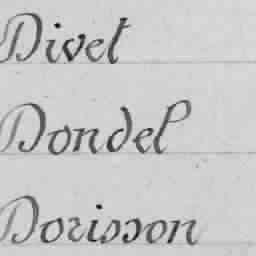 Divet
Dondel
Dorisson